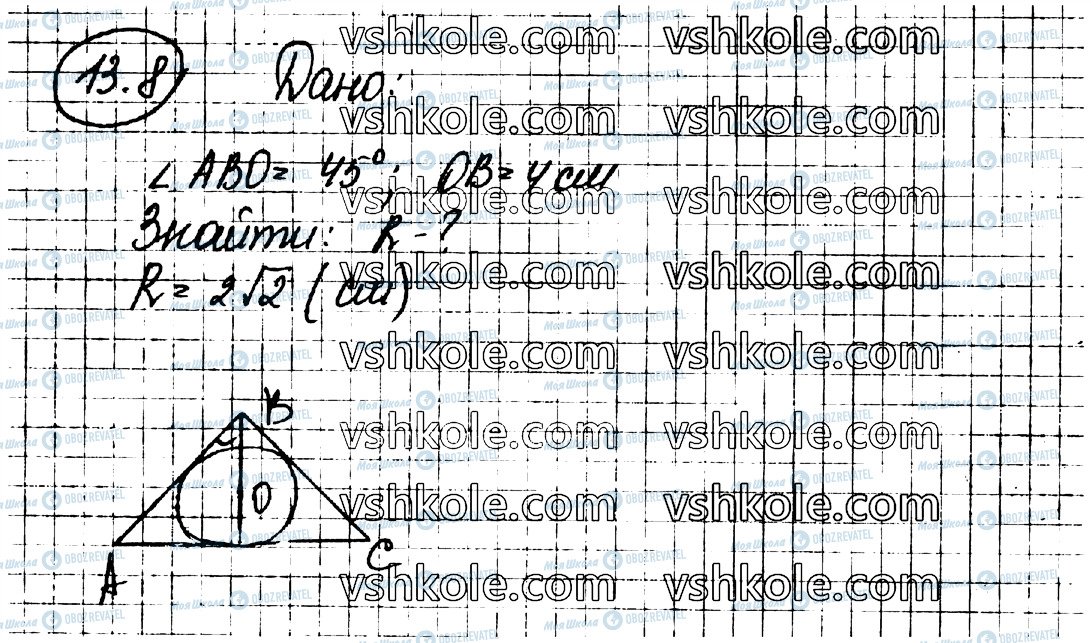 13.8 Дано:
∠ ABO = 45°; OB = 4 см
Знайти: R - ?
R = 2√2 (см)
B
O
A
C
vshkole.com vshkole.com
vshkole.com vshkole.com
vshkole.com vshkole.com
vshkole.com vshkole.com
vshkole.com vshkole.com
vshkole.com vshkole.com
vshkole.com vshkole.com
vshkole.com vshkole.com
Моя Школа OBOZREVATEL